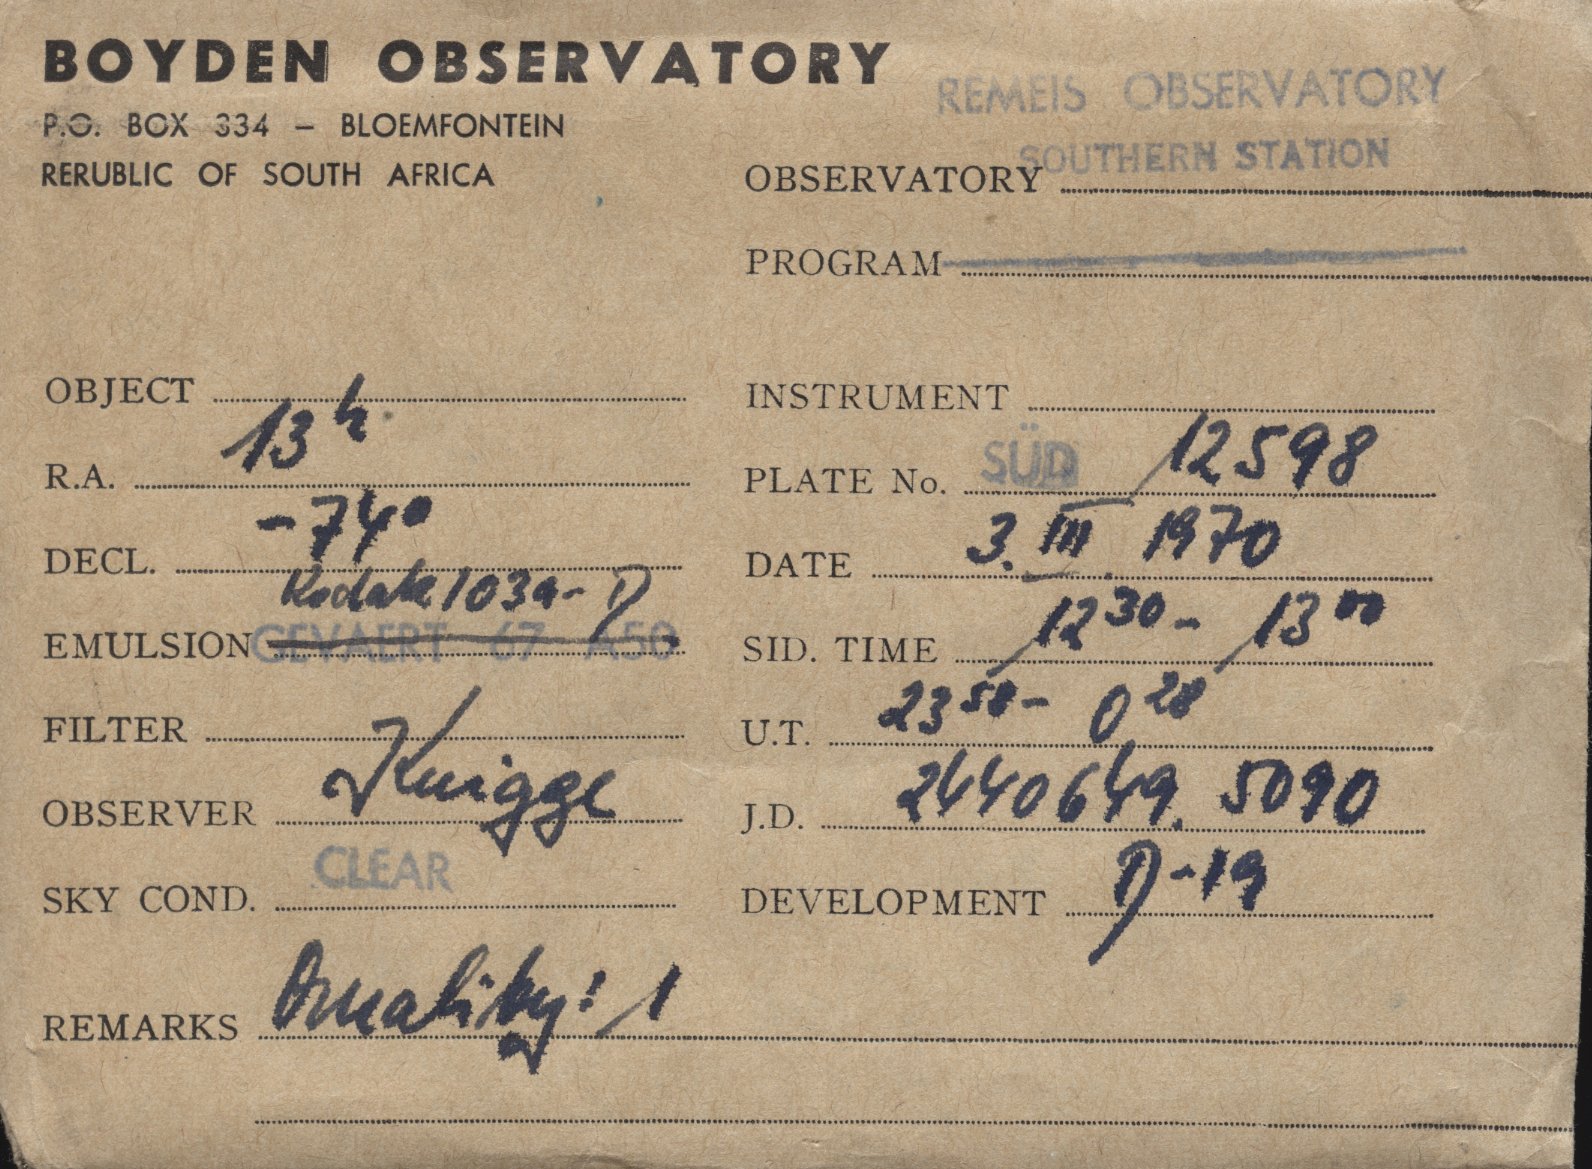 BOYDEN OBSERVATORY
P.O. BOX 334 – BLOEMFONTEIN
RERUBLIC OF SOUTH AFRICA
REMEIS OBSERVATORY
SOUTHERN STATION
OBSERVATORY
PROGRAM
OBJECT
R.A. 13h
DECL. -74°
Kodak 103a-D
EMULSION GEVAERT 67 A50
FILTER
OBSERVER Knigge
SKY COND. CLEAR
INSTRUMENT
PLATE No. SÜD 12598
DATE 3. III. 1970
SID. TIME 12 30 - 13 00
U.T. 23 58 - 0 28
J.D. 2440649.5090
DEVELOPMENT D-19
REMARKS Quality: 1